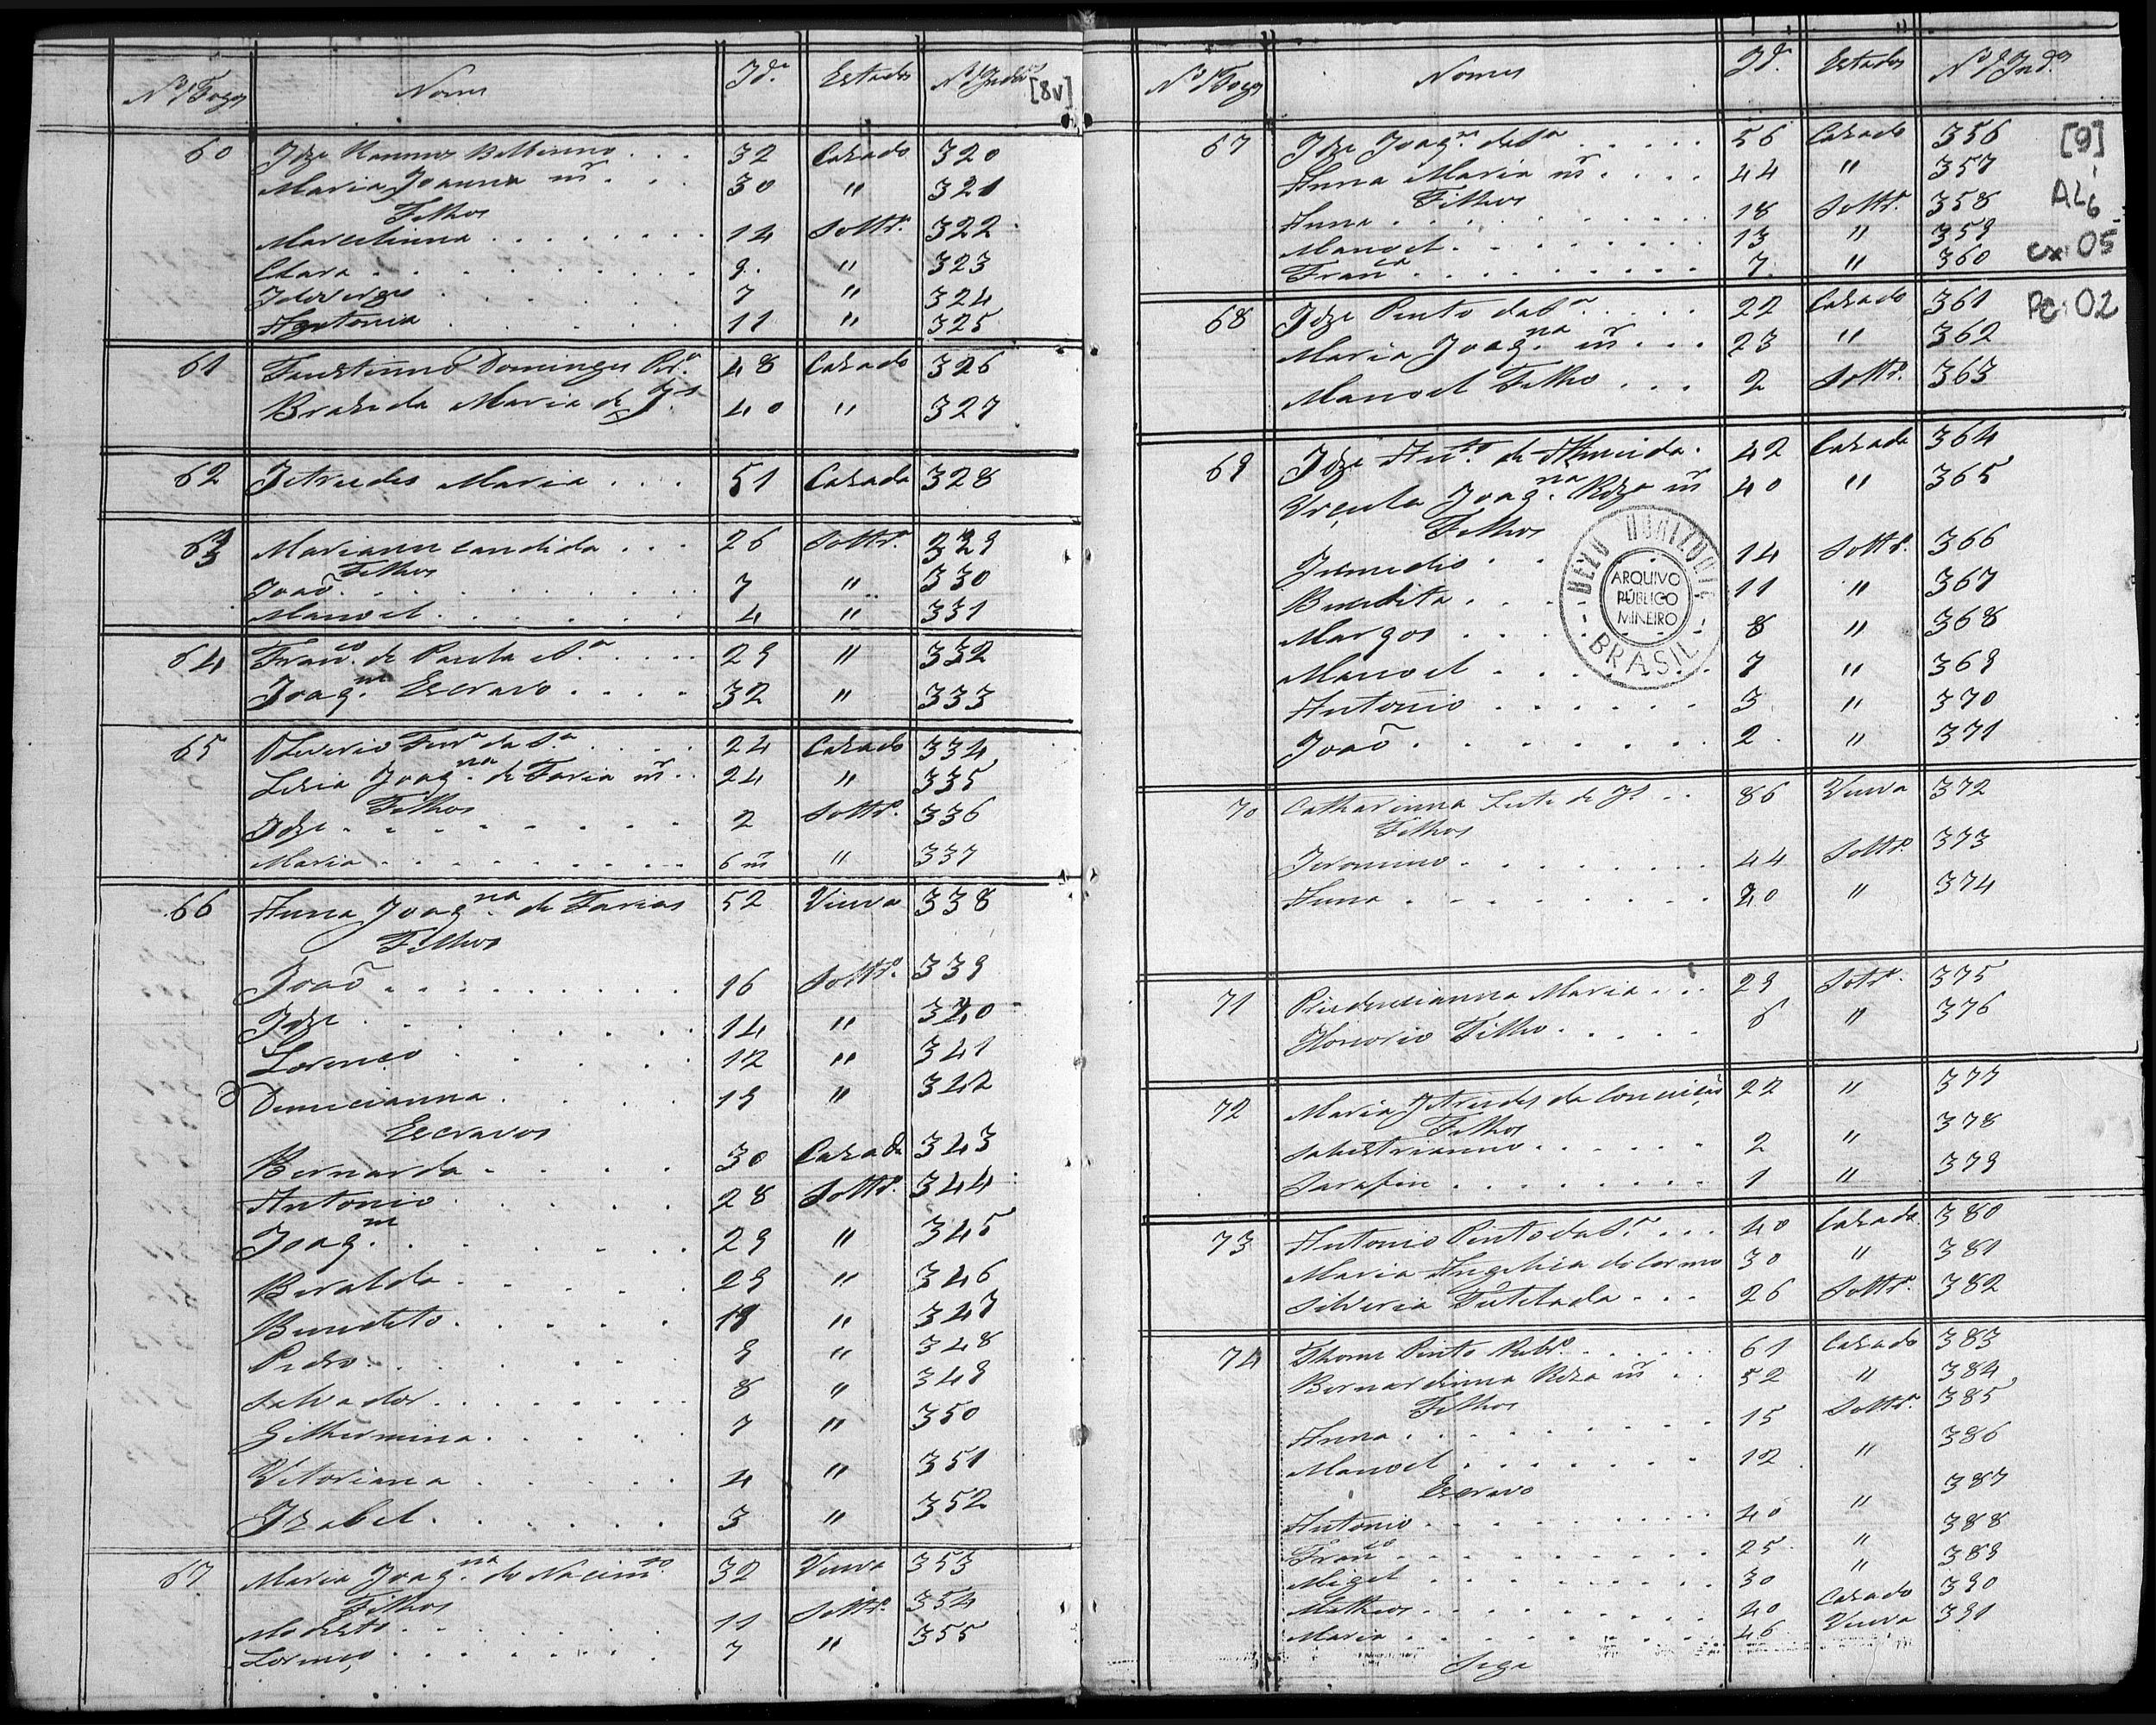 Nº Fogos Nomes Id.e Estados Nº Indos [8v]
60 Joze Ramos Balbino . . . 32 Cazado 320
Maria Joanna m.er . . . 30 " 321
Filhos
Marcelinna . . . 14 Soltr.o 322
Clara . . . 9 " 323
Eduverges . . . 7 " 324
Antonia . . . 11 " 325
61 Faustinno Domingues Rd.o 48 Cazado 326
Brazida Maria de Js 40 " 327
62 Jetrudes Maria . . . 51 Cazada 328
63 Marianna candida . . . 26 Soltr.o 329
Filhos
João . . . 7 " 330
Manoel . . . 4 " 331
64 Franco de Paula S.a . . . 29 " 332
Joaq.m Escravo . . . 32 " 333
65 Oliverio Ferr.a da S.a . . . 24 Cazado 334
Lisia Joaq.na de Faria m.er . . 24 " 335
Filhos
Joze . . . 2 Soltr.o 336
Maria . . . 6 m " 337
66 Anna Joaq.na de Farias 52 Viuva 338
Filhos
João . . . 16 Soltr.o 339
Joze . . . 14 " 340
Lorenço . . . 12 " 341
Demicianna . . . 19 " 342
Escravos
Bernarda . . . 30 Cazada 343
Antonio . . . 28 Soltr.o 344
Joaq.m . . . 29 " 345
Beralda . . . 29 " 346
Benedito . . . 19 " 347
Pedro . . . 9 " 348
Salvador . . . 8 " 349
Gilhermina . . . 7 " 350
Vitoriana . . . 4 " 351
Izabel . . . 3 " 352
67 Maria Joaq.na do Nacim.to 32 Viuva 353
Filhos
Modesto . . . 11 Soltr.o 354
Lorenço . . . 7 " 355
Nº Fogos Nomes Id.e Estados Nº Indos
67 Joze Joaq.m de S.a . . . 56 Cazado 356 [9]
Anna Maria m.er . . . 44 " 357
Filhos
Anna . . . 18 Soltr.o 358 AL6
Manoel . . . 13 " 359
Franca . . . 7 " 360 cx. 05
68 Joze Pinto da S.a . . . 22 Cazado 361 Pc. 02
Maria Joaq.na m.er . . . 23 " 362
Manoel Filho . . . 2 Soltr.o 363
69 Joze Ant.o de Almeida . 42 Cazado 364
Urçula Joaq.na Roza m.er 40 " 365
Filhos
Jumedio . . . 14 Soltr.o 366
Benedita . . . 11 " 367
Margos . . . 8 " 368
Manoel . . . 7 " 369
Antonio . . . 3 " 370
João . . . 2 " 371
BELO HORIZONTE
ARQUIVO
PÚBLICO
MINEIRO
BRASIL
70 Catharinna Leite de Js . . 86 Viuva 372
Filhos
Jeronimo . . . 44 Soltr.o 373
Anna . . . 40 " 374
71 Prudencianna Maria . . . 29 Soltr.o 375
Honorio Filho . . . 8 " 376
72 Maria Jetrudes da Conceição 22 " 377
Filhos
Salustrianno . . . 2 " 378
Sarafim . . . 1 " 379
73 Antonio Pinto da S.a . . . 40 Cazado 380
Maria Angelica do Carmo 30 " 381
Silveria Tutelada . . . 26 Soltr.o 382
74 Thome Pinto Rib.o . . . 61 Cazado 383
Bernardinna Roza m.er . . 52 " 384
Filhos
Anna . . . 15 Soltr.o 385
Manoel . . . 12 " 386
Escravo
Antonio . . . 40 " 387
Franco . . . 25 " 388
Migel . . . 30 " 389
Matheus . . . 40 Cazado 390
Maria . . . 46 Viuva 391
Sega